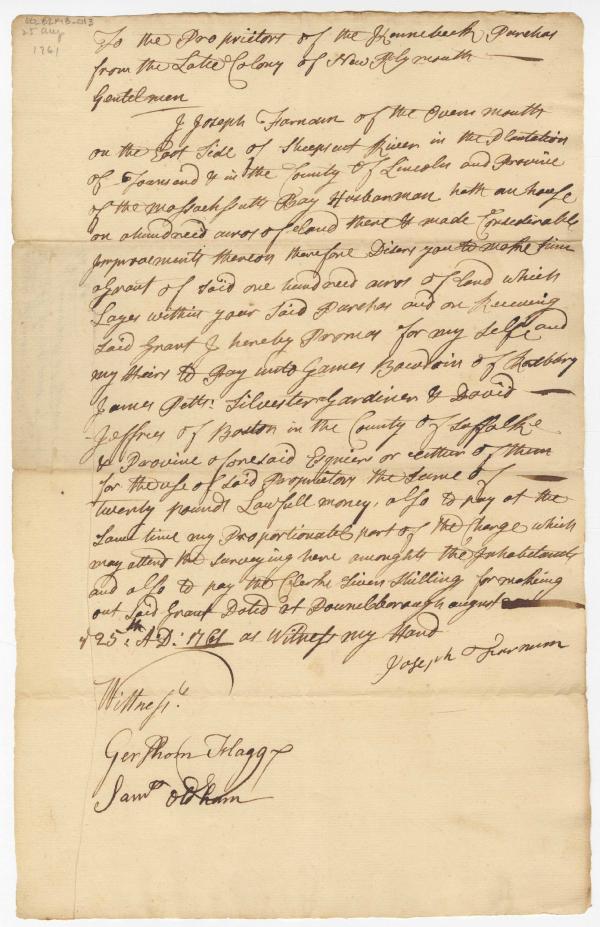 25 Aug
1761
To the Proprietors of the Kennebeck Purchas
from the Late Colony of New Plymouth
Gentelmen
I Joseph Farnum of the Ovens mouth
on the East Side of Sheepscut River in the Plantation
of Townsend & in the County of Lincoln and Provine
of the Massachsutts Bay Husbanman hath an house
on a hundreed acros of land there & made Considirable
Improvements thereon therefore Disers you to make him
a Grant of said one hundreed acros of land which
Layes within your Said Purchas and on Receiving
Said Grant I hereby Promas for my Self and
my Heirs to Pay unto Games Bowdoin of Roxbury
James Pitts Silvester Gardiner & David
Jeffries of Boston in the County of Suffolke
& Provine aforesaid Esquiers or either of them
for the use of said Proprietors the Sume of
twenty pounds Lawfull money, also to pay at the
Same time my Proportionabl part of the Charge which
may attend the surveying here amonghts the Inhabetants
and also to pay the Clerke Siven Shilling for making
out Said Grant Datid at Pounelborough august
25th A:D: 1761 as Witness my Hand
Joseph Farnum
Wittness
Gershom Flagg
Samll Oldham